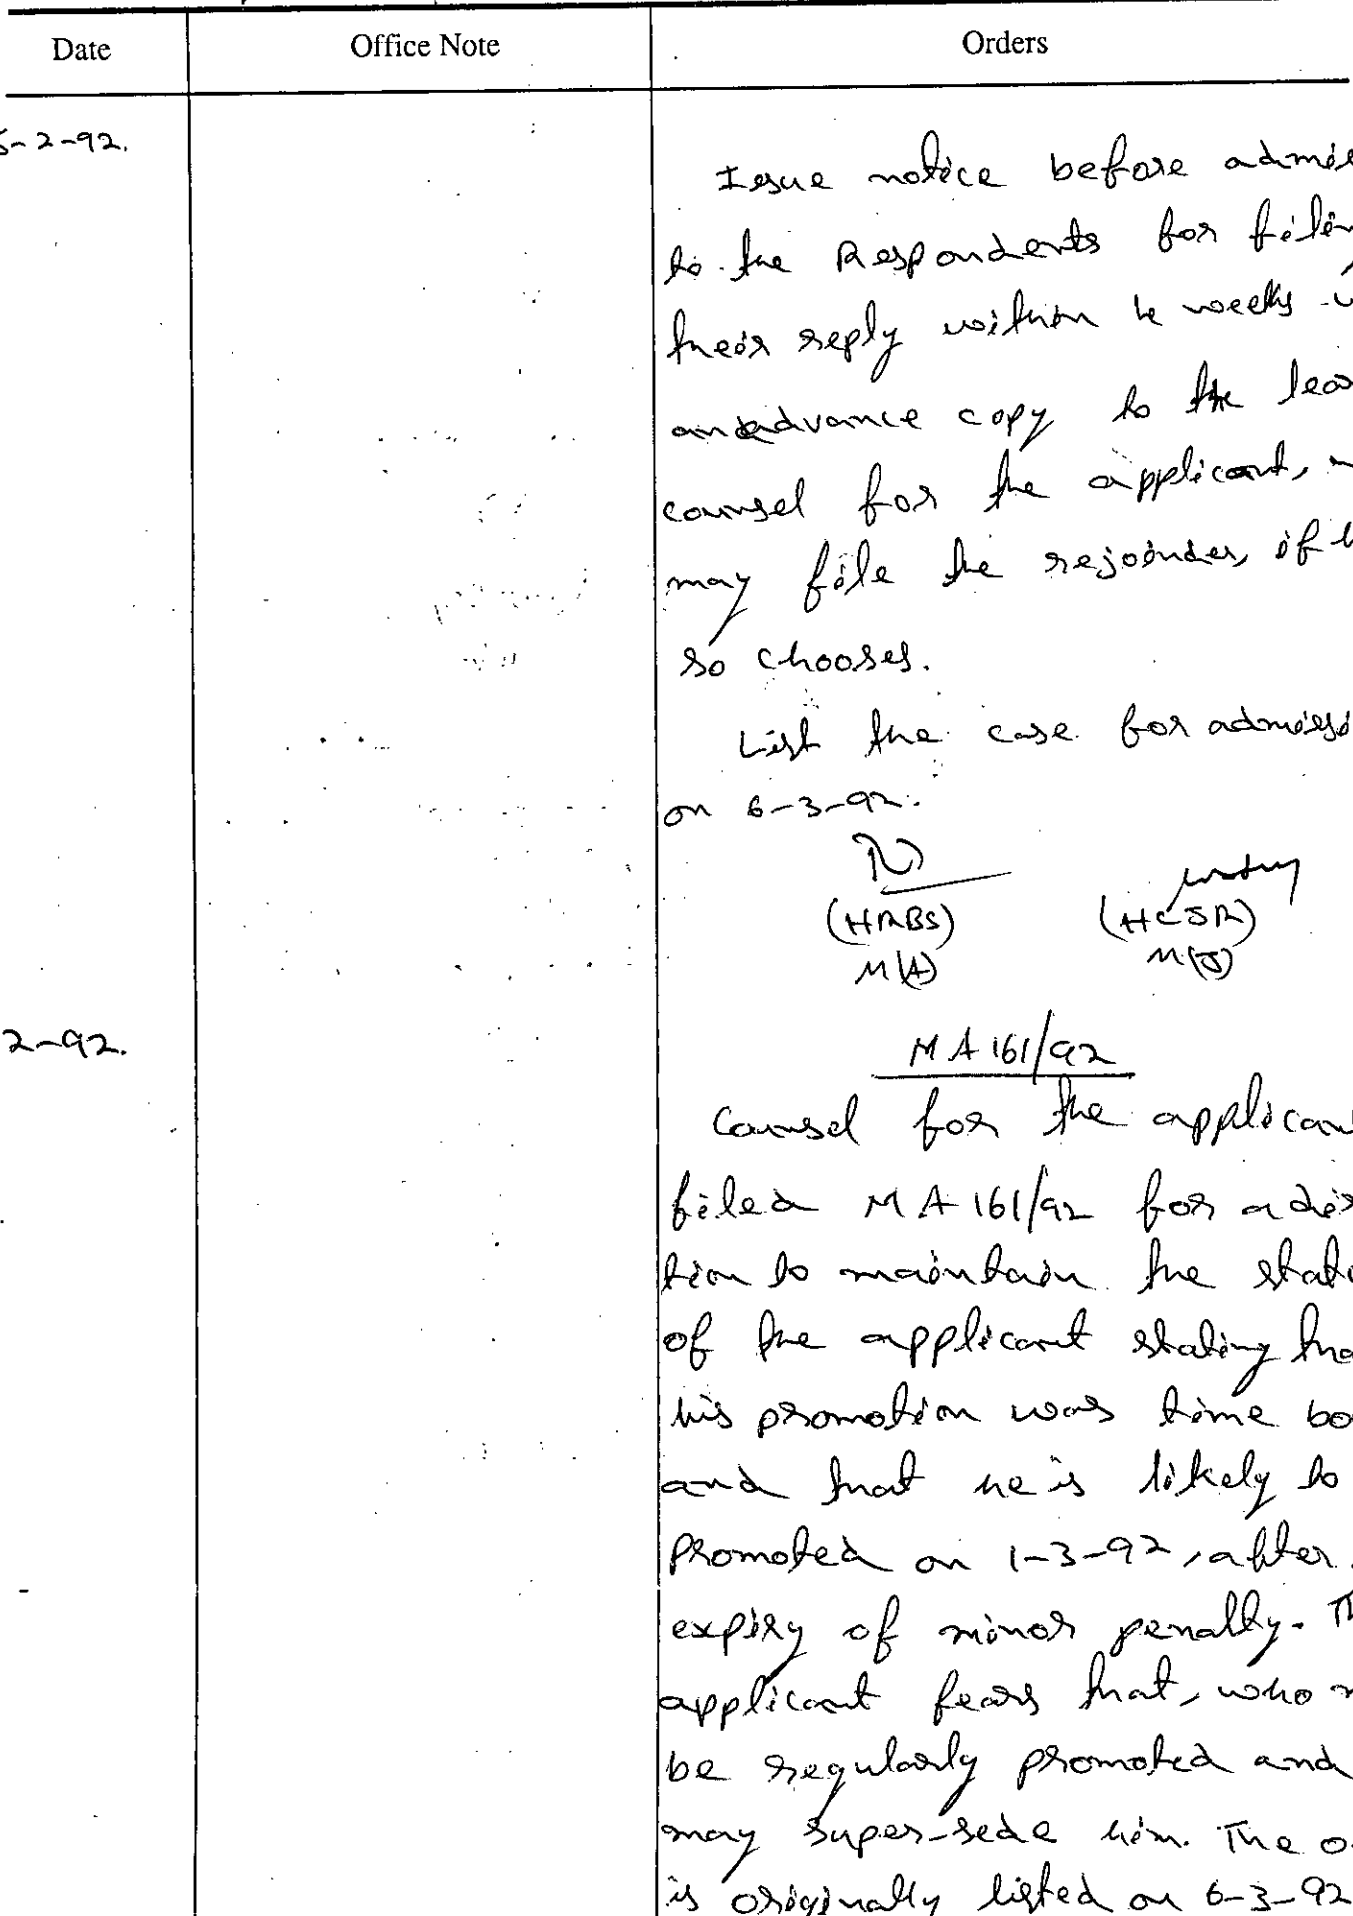 Date Office Note Orders
5-2-92.
Issue notice before admis
to the Respondents for filin
their reply within 4 weeks
an advance copy to the lear
counsel for the applicant,
may file the rejoinder, if
so chooses.
List the case for admissi
on 6-3-92.
(HRBS) (HCJR)
M(A) M(J)
2-92.
MA 161/92
Counsel for the applican
filed MA 161/92 for a dir
tion to maintain the stat
of the applicant stating tha
his promotion was time bo
and that he is likely to
promoted on 1-3-92, after
expiry of minor penalty. Th
applicant fears that, who
be regularly promoted and
may super-sede him. The o
is originally listed on 6-3-92